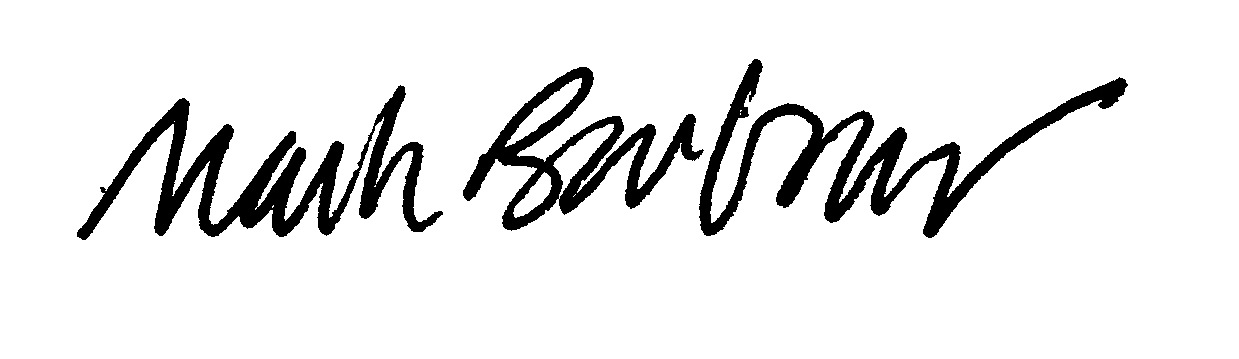 Mark Barbour